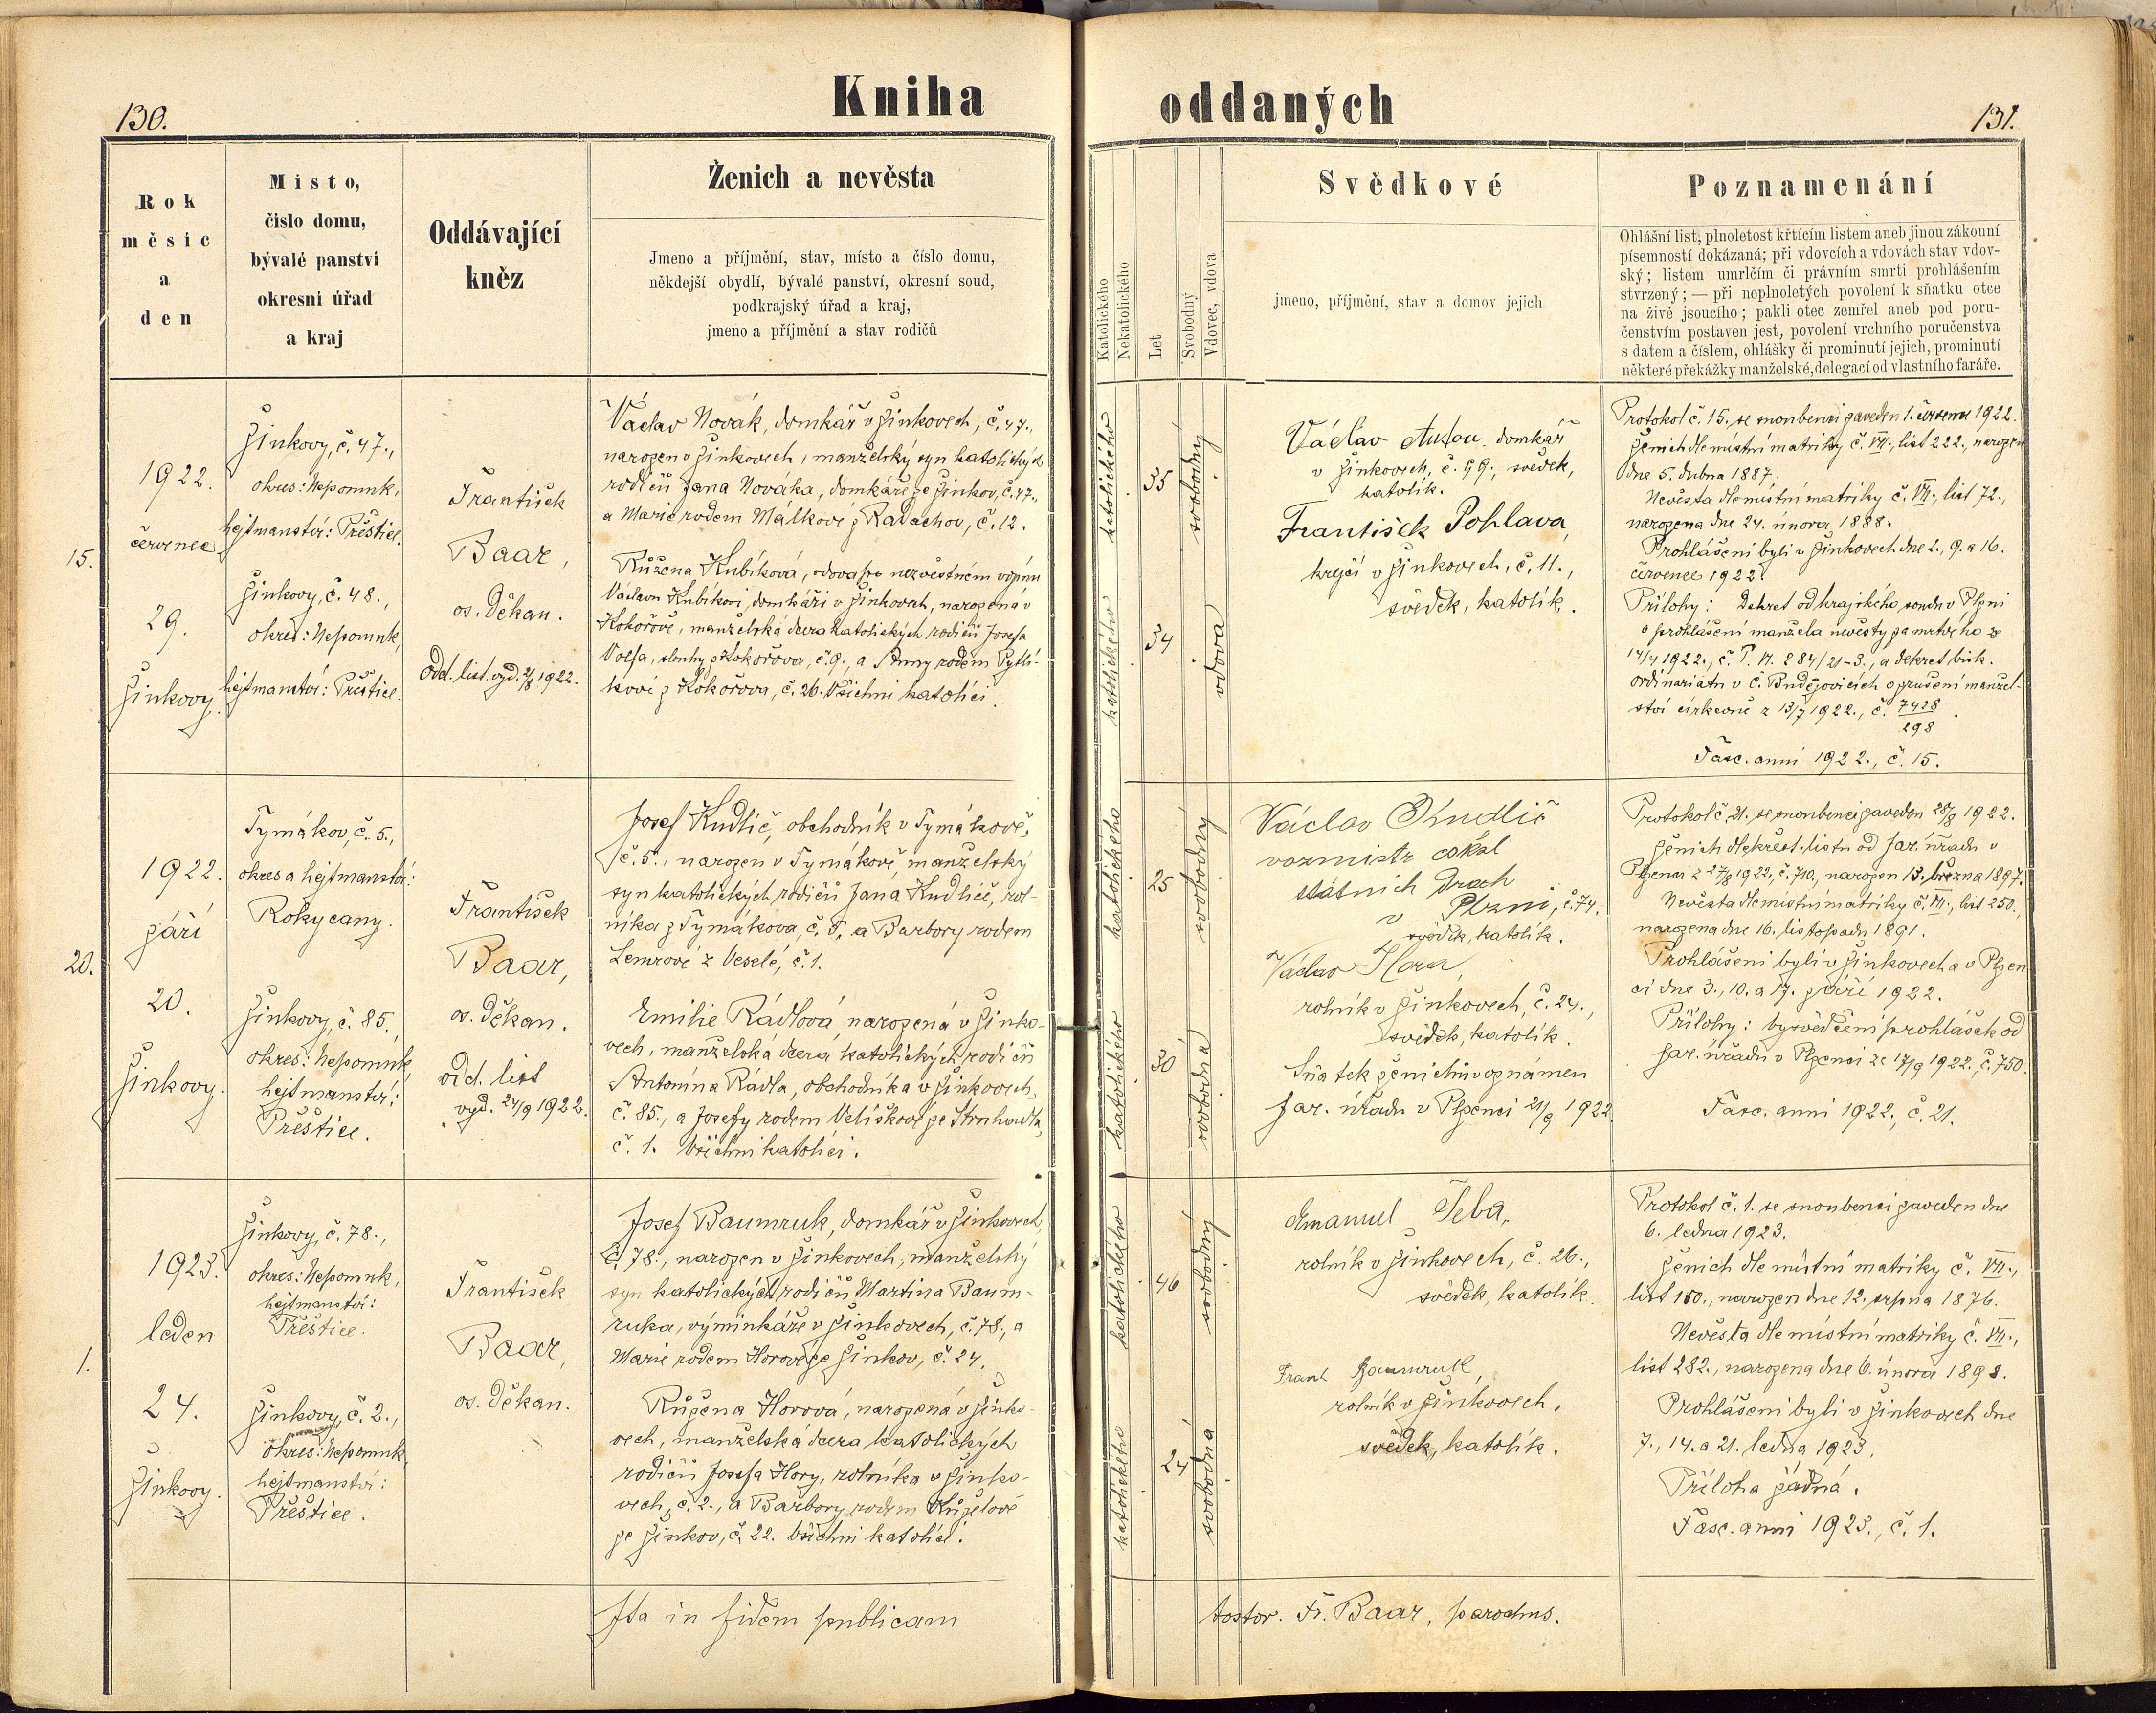 130.
Kniha
oddaných
131.
Rok
měsíc
a
den
Místo,
číslo domu,
bývalé panství
okresní úřad
a kraj
Oddávající
kněz
Ženich a nevěsta
Jmeno a příjmění, stav, místo a číslo domu,
někdejší obydlí, bývalé panství, okresní soud,
podkrajský úřad a kraj,
jmeno a příjmění a stav rodičů
Katolického
Nekatolického
Let
Svobodný
Vdovec, vdova
Svědkové
jmeno, příjmění, stav a domov jejich
Poznamenání
Ohlášní list, plnoletost křtícím listem aneb jinou zákonní
písemností dokázaná; při vdovcích a vdovách stav vdov-
ský; listem umrlčím či právním smrti prohlášením
stvrzený; — při neplnoletých povolení k sňatku otce
na živě jsoucího; pakli otec zemřel aneb pod poru-
čenstvím postaven jest, povolení vrchního poručenstva
s datem a číslem, ohlášky či prominutí jejich, prominutí
některé překážky manželské, delegací od vlastního faráře.
15.
1922.
červenec
29.
Žinkovy.
Žinkovy, č. 47.,
okres: Nepomuk,
hejtmanství: Přeštice.
Žinkovy, č. 48.,
okres: Nepomuk,
hejtmanství: Přeštice.
František
Baar,
os. děkan.
odd. list. vyd. 2/8 1922.
Václav Novák, domkář v Žinkovech, č. 47.,
narozen v Žinkovech, manželský syn katolických
rodičů Jana Nováka, domkáře ze Žinkov, č. 47.,
a Marie rodem Málkové z Radochov, č. 12.
Růžena Kubíková, vdova po nezvěstném vojínu
Václavu Kubíkovi, domkáři v Žinkovech, narozená v
Kokořově, manželská dcera katolických rodičů Josefa
Volfa, sluhy z Kokořova, č. 9., a Anny rodem Pytlí-
kové z Kokořova, č. 26. Všichni katolíci.
katolického
35
svobodný
katolického
34
vdova
Václav Auton domkář
v Žinkovech, č. 99., svědek,
katolík.
František Pohlava,
krejčí v Žinkovech, č. 11.,
svědek, katolík.
Protokol č. 15. se snoubenci zaveden 1. července 1922.
Ženich dle místní matriky č. VII., list 222., narozen
dne 5. dubna 1887.
Nevěsta dle místní matriky č. VII., list 72.,
narozena dne 24. února 1888.
Prohlášeni byli v Žinkovech dne 2., 9. a 16.
července 1922.
Přílohy: Dekret od krajského soudu v Plzni
o prohlášení manžela nevěsty za mrtvého z
14/4 1922., č. T. VI. 284/21-3., a dekret bisk.
ordinariátu v Č. Budějovicích o zrušení manžel-
ství církevně z 13/7 1922., č. 7428
298.
Fasc. anni 1922., č. 15.
20.
1922.
září
20.
Žinkovy.
Tymákov, č. 5.,
okres a hejtmanství:
Rokycany.
Žinkovy, č. 85.
okres: Nepomuk
hejtmanství:
Přeštice.
František
Baar,
os. děkan.
odd. list
vyd. 24/9 1922.
Josef Kudlič, obchodník v Tymákově,
č. 5., narozen v Tymákově, manželský
syn katolických rodičů Jana Kudliče, rol-
níka z Tymákova, č. 5, a Barbory rodem
Lemrové z Veselé, č. 1.
Emilie Rádlová narozená v Žinko-
vech, manželská dcera katolických rodičů
Antonína Rádla, obchodníka v Žinkovech,
č. 85., a Josefy rodem Velíškové ze Strnhradla,
č. 1. Všichni katolíci.
katolického
25
svobodný
katolického
30
svobodná
Václav Kudlič
vozmistr čskl
státních drach
v Plzni, č. 74.
svědek, katolík.
Václav Hora,
rolník v Žinkovech, č. 24.,
svědek, katolík.
Sňatek ženichův oznámen
far. úřadu v Plzenci 21/9 1922
Protokol č. 21. se snoubenci zaveden 28/8 1922.
Ženich dle křest. listu od far. úřadu v
Plzenci z 27/8 1922, č. 710., narozen 13. března 1897.
Nevěsta dle místní matriky č. VII., list 250.,
narozena dne 16. listopadu 1891.
Prohlášeni byli v Žinkovech a v Plzen-
ci dne 3., 10. a 17. září 1922.
Přílohy: vysvědčení prohlášek od
far. úřadu v Plzenci ze 17/9 1922. č. 750.
Fasc. anni 1922., č. 21.
1.
1923.
leden
24.
Žinkovy.
Žinkovy, č. 78.,
okres: Nepomuk,
hejtmanství:
Přeštice.
Žinkovy, č. 2.,
okres: Nepomuk
hejtmanství:
Přeštice.
František
Baar,
os. děkan.
Josef Baumruk, domkář v Žinkovech,
č. 78., narozen v Žinkovech, manželský
syn katolických rodičů Martina Baum-
ruka, výminkáře v Žinkovech, č. 78., a
Marie rodem Horové ze Žinkov, č. 24.
Růžena Horová, narozená v Žinko-
vech, manželská dcera katolických
rodičů Josefa Hory, rolníka v Žinko-
vech, č. 2., a Barbory rodem Kuželové
ze Žinkov, č. 22. Všichni katolíci.
katolického
46
svobodný
katolického
24
svobodná
Emanuel Teba,
rolník v Žinkovech, č. 26.,
svědek, katolík.
Frant Baumruk,
rolník v Žinkovech,
svědek, katolík.
Protokol č. 1. se snoubenci zaveden dne
6. ledna 1923.
Ženich dle místní matriky č. VII.,
list 150., narozen dne 12. srpna 1876.
Nevěsta dle místní matriky č. VII.,
list 282., narozena dne 6. února 1898.
Prohlášeni byli v Žinkovech dne
7., 14. a 21. ledna 1923.
Příloha žádná.
Fasc. anni 1923., č. 1.
Ita in fidem publicam
testor. Fr. Baar, parochus.